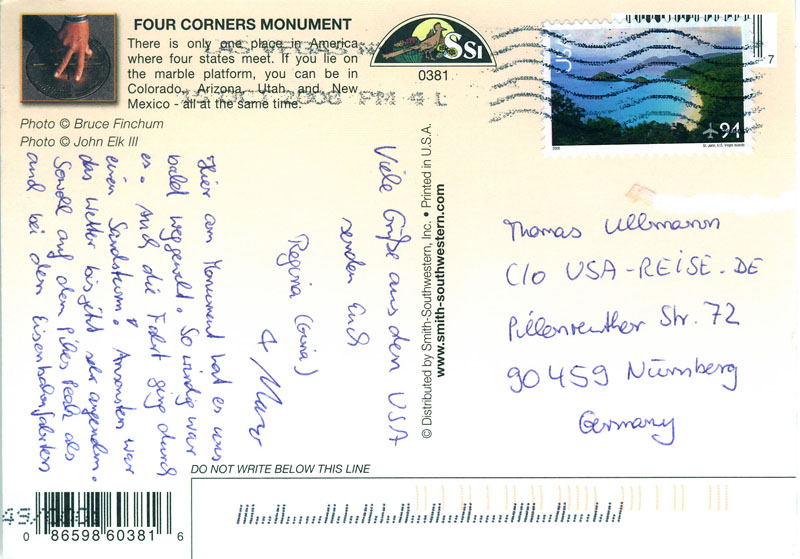 FOUR CORNERS MONUMENT
There is only one place in America
where four states meet. If you lie on
the marble platform, you can be in
Colorado, Arizona, Utah and New
Mexico - all at the same time.
Photo © Bruce Finchum
Photo © John Elk III
LAS VEGAS NV
2008 PM 4 L
SSI
0381
USA
94
St. John, U.S. Virgin Islands
7
Viele Grüße aus den USA
senden Euch
Regina (Gina)
+ Marc
Hier am Monument hat es uns
bald weggeweht. So windig war
es. Auch die Fahrt ging durch
einen Sandsturm. Ansonsten war
das Wetter bis jetzt sehr angenehm.
Sowohl auf dem Pikes Peak als
auch bei den Eisenbahnfahrten
© Distributed by Smith-Southwestern, Inc. • Printed in U.S.A.
www.smith-southwestern.com
Thomas Ullmann
C/O USA-REISE.DE
Pillenreuther Str. 72
90459 Nürnberg
Germany
DO NOT WRITE BELOW THIS LINE
0 86598 60381 6